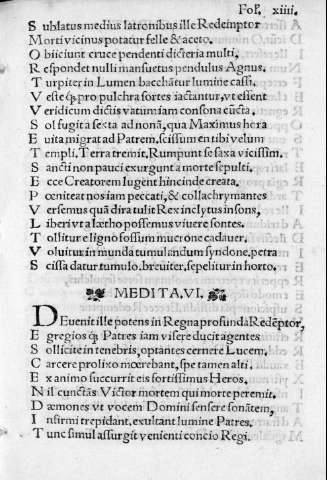 Fol. xiiii.
S ublatus medius latronibus ille Redemptor
M orti vicinus potatur felle & aceto.
O biiciunt cruce pendenti dicteria multi.
R espondet nulli mansuetus pendulus Agnus.
T urpiter in Lumen bacchātur lumine cassi.
V este q̄ pro pulchra sortes iactantur, vt essent
V eridicum dictis vatum iam consona cūcta.
S ol fugit a sexta ad nonā, qua Maximus hera
E uita migrat ad Patrem, scissum en tibi velum
T empli, Terra tremit, Rumpunt se saxa vicissim.
S ancti non pauci exurgunt a morte sepulti.
E cce Creatorem lugent hinc inde creata.
P œniteat nos iam peccati, & collachrymantes
V ersemus quā dira tulit Rex inclytus insons,
L iberi vt a lætho possemus viuere sontes.
T ollitur e ligno fossum mucrone cadauer.
V oluitur in munda tumulandum syndone, petra
S cissa datur tumulo, breuiter, sepelitur in horto.
MEDITA. VI.
D Euenit ille potens in Regna profunda Redēptor,
E gregios q̄ Patres iam visere ducit agentes
S ollicite in tenebris, optātes cernere Lucem.
C arcere prolixo mœrebant, spe tamen alti.
E x animo succurrit eis fortissimus Heros.
N il cunctās Victor mortem qui morte peremit.
D æmones vt vocem Domini sensere sonātem,
I nfirmi trepidant, exultant lumine Patres.
T unc simul assurgit venienti concio Regi.